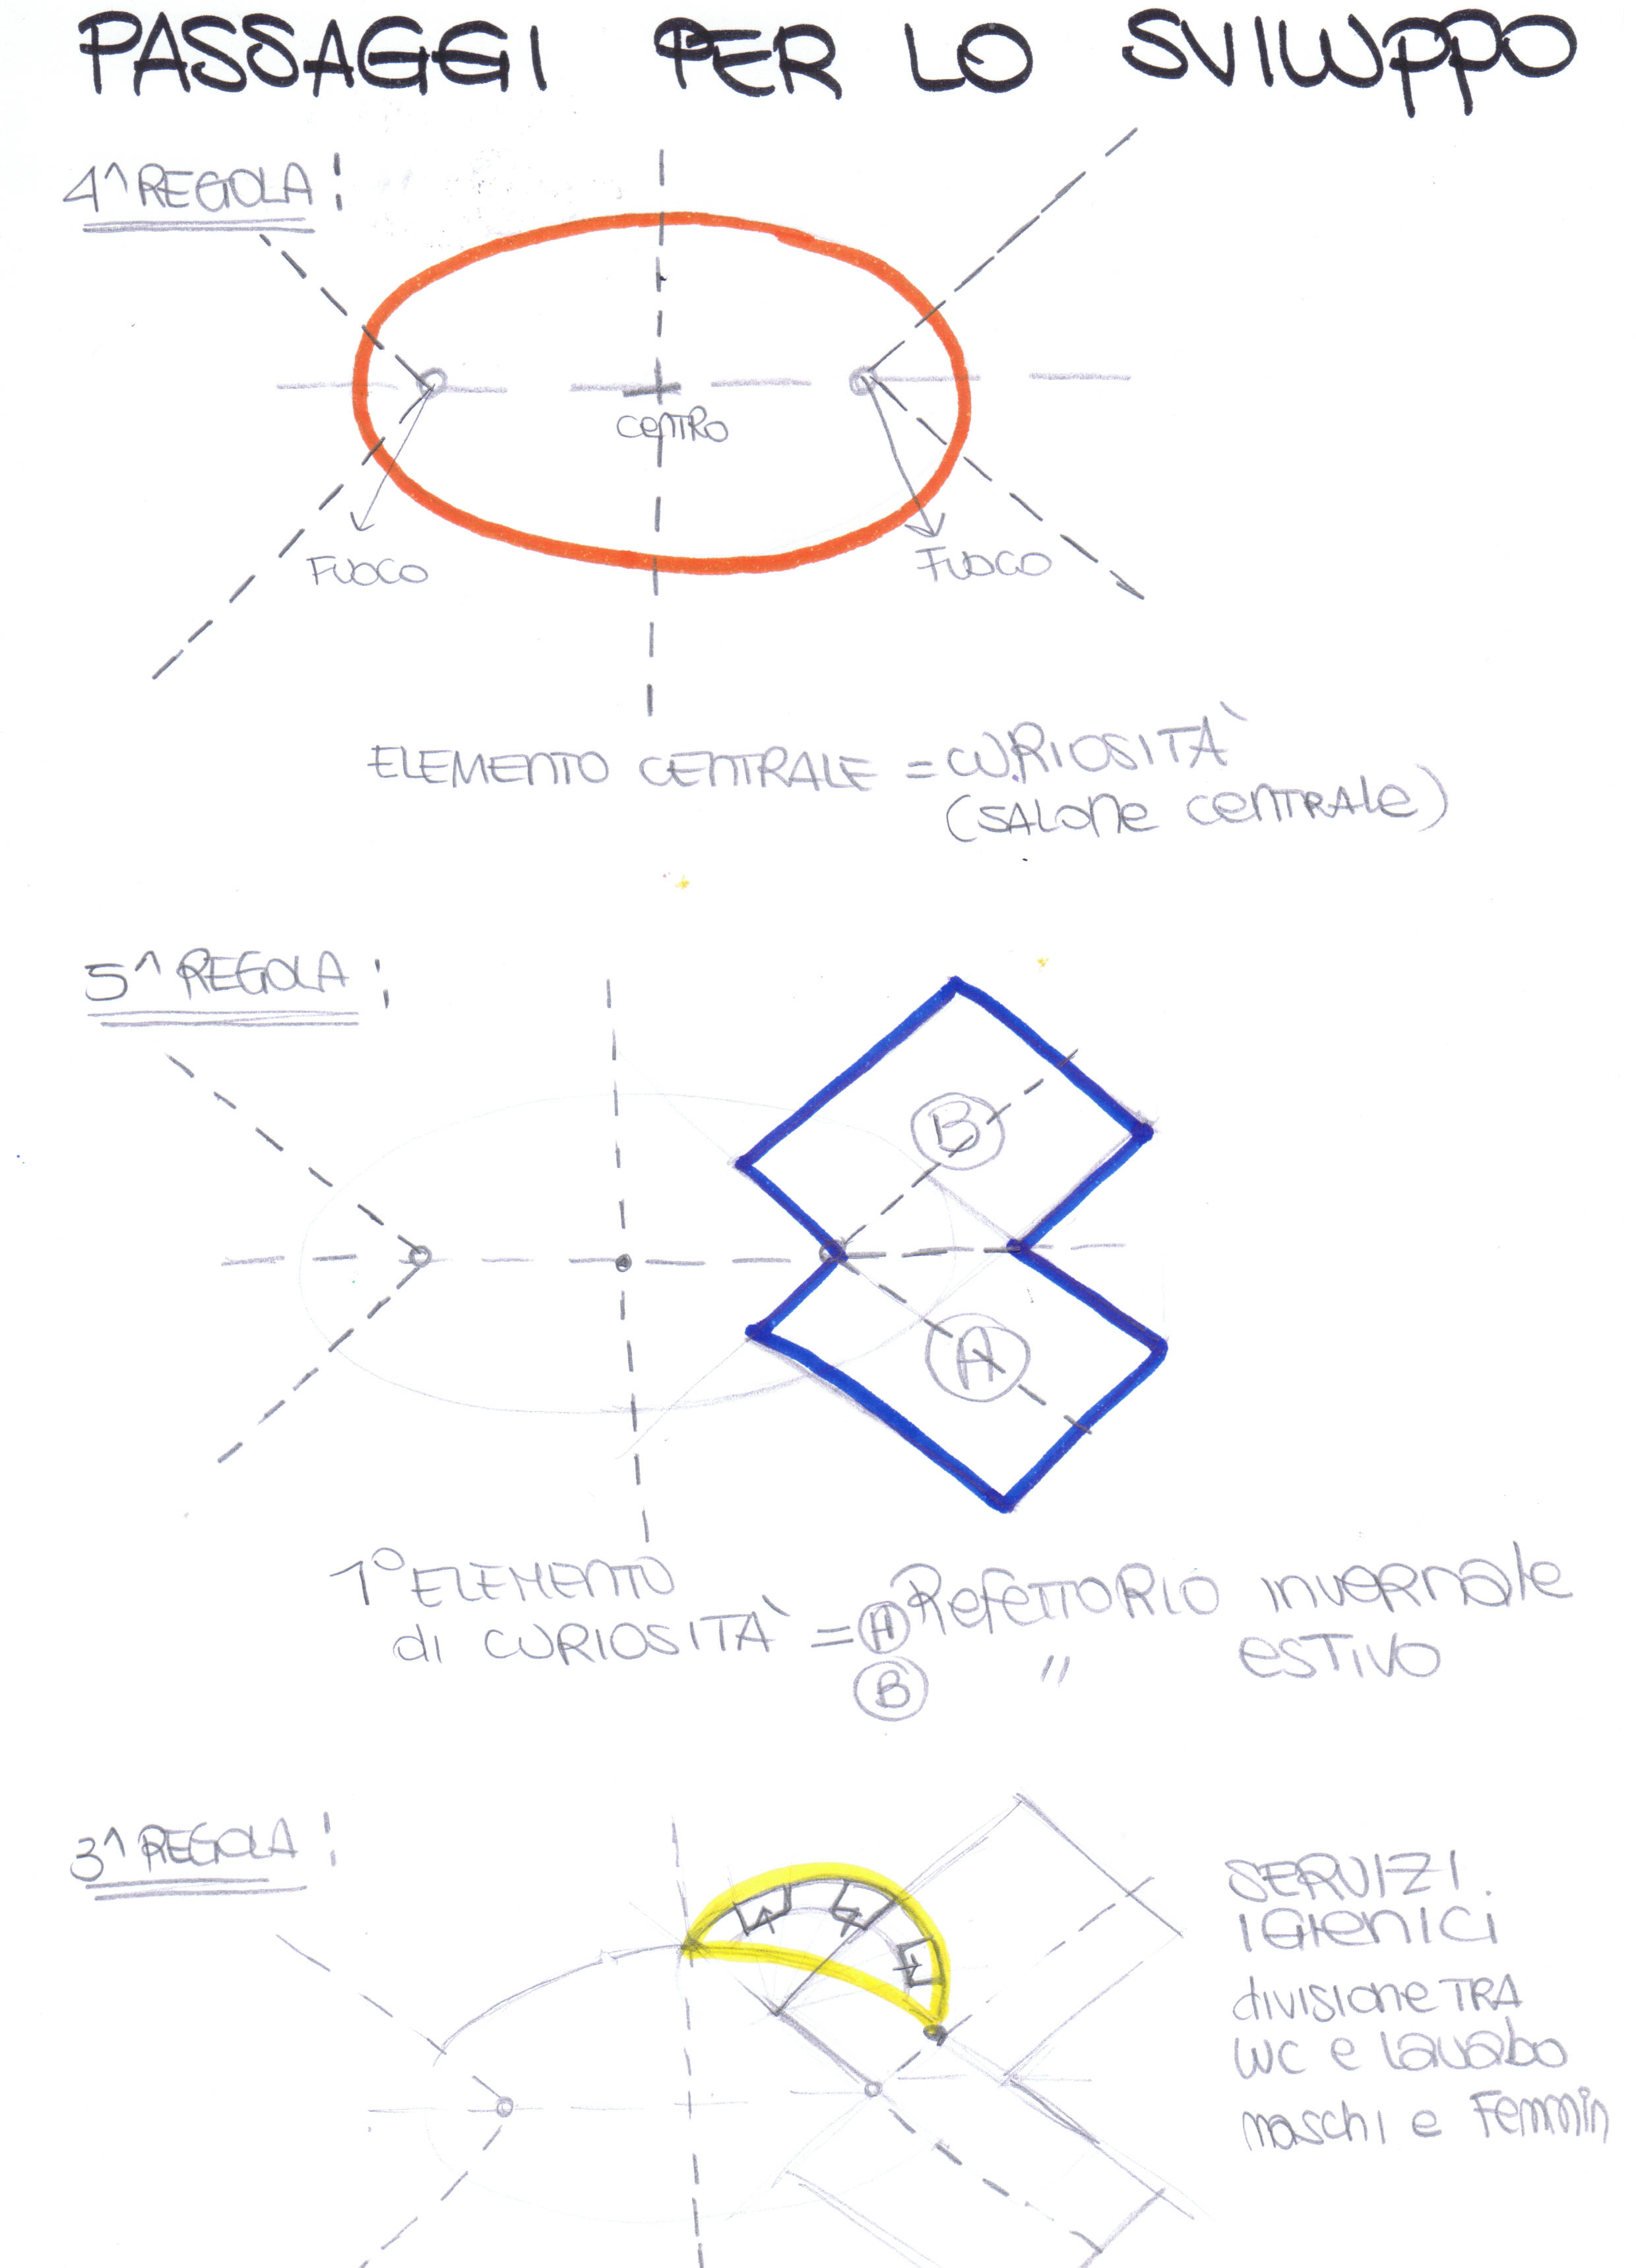 PASSAGGI PER LO SVILUPPO
4^ REGOLA:
CENTRO
FUOCO
FUOCO
ELEMENTO CENTRALE = CURIOSITÀ
(SALONE CENTRALE)
5^ REGOLA:
B
A
1° ELEMENTO
di CURIOSITÀ = A REFETTORIO INVERNALE
B " ESTIVO
3^ REGOLA:
SERVIZI
IGIENICI
divisione TRA
WC e lavabo
maschi e Femmin